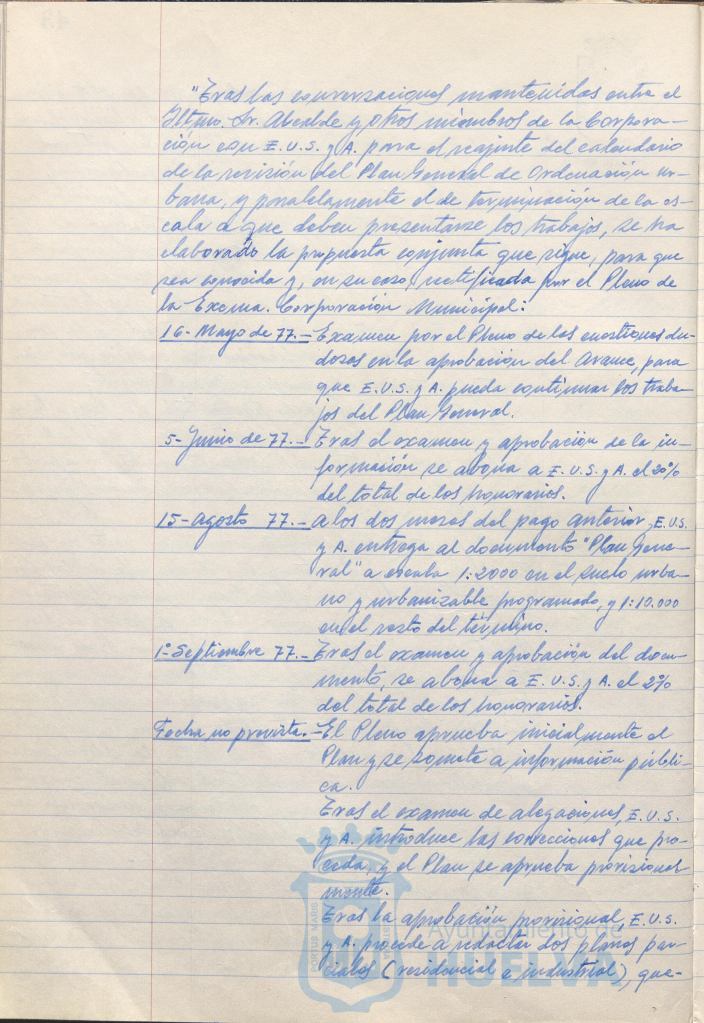 "Tras las conversaciones mantenidas entre el
Iltmo. Sr. Alcalde y otros miembros de la Corpora-
ción con E.U.S. y A. para el reajuste del calendario
de la revisión del Plan General de Ordenación ur-
bana, y paralelamente el de terminación de la es-
cala a que deben presentarse los trabajos, se ha
elaborado la propuesta conjunta que sigue, para que
sea conocida y, en su caso, rectificada por el Pleno de
la Excma. Corporación Municipal:
16- Mayo de 77.- Examen por el Pleno de las cuestiones du-
dosas en la aprobación del Avance, para
que E.U.S. y A. pueda continuar los traba-
jos del Plan General.
5- Junio de 77.- Tras el examen y aprobación de la in-
formación se abona a E.U.S. y A. el 20%
del total de los honorarios.
15- agosto 77.- a los dos meses del pago anterior, E.U.S.
y A. entrega al documento "Plan Gene-
ral" a escala 1:2000 en el suelo urba-
no y urbanizable programado, y 1:10.000
en el resto del término.
1º Septiembre 77.- Tras el examen y aprobación del docu-
mento, se abona a E.U.S. y A. el 2%
del total de los honorarios.
Fecha no prevista.- El Pleno aprueba inicialmente el
Plan y se somete a información públi-
ca.
Tras el examen de alegaciones, E.U.S.
y A. introduce las correcciones que pro-
ceda, y el Plan se aprueba provisional
mente.
Tras la aprobación provisional, E.U.S.
y A. procede a redactar dos planes par-
ciales (residencial e industrial), que-
PORTUS MARIS
Ayuntamiento de
HUELVA